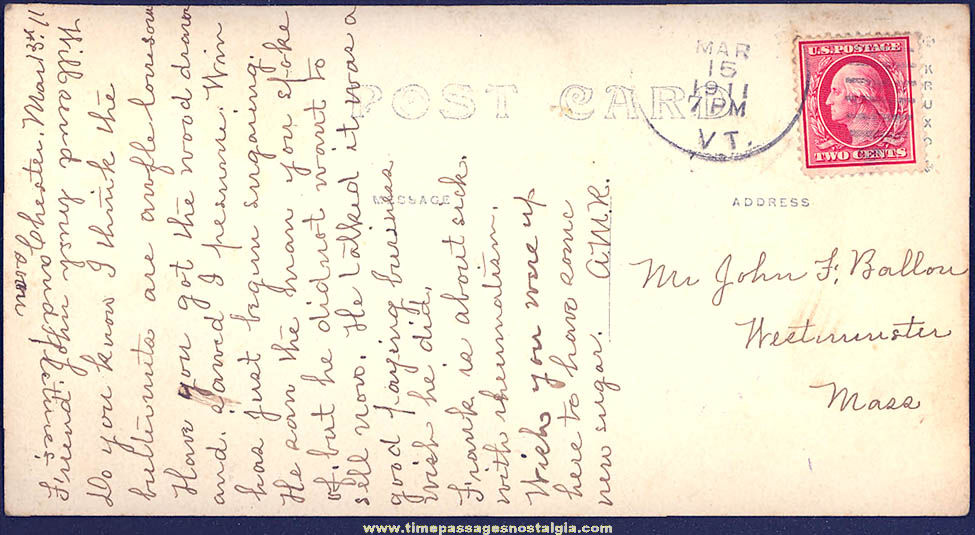 Chester. Mar 13th 11
Friend John
Will send brush
and
soon
Do you know I think the
butternuts are awful lonesome
Have you got the wood drawn
and sawed I pesume. Win
has just begun sugaring.
He saw the man you spoke
of, but he did not want to
sell now. He talked it was a
good paying business
wish he did.
Frank is about sick
with rheumatism.
Wish you were up
here to have some
new sugar. A.M.R.
POST CARD
MESSAGE
ADDRESS
MAR
15
1911
7 PM
VT.
U.S. POSTAGE
TWO CENTS
Mr John F. Ballou
Westminster
Mass
www.timepassagesnostalgia.com